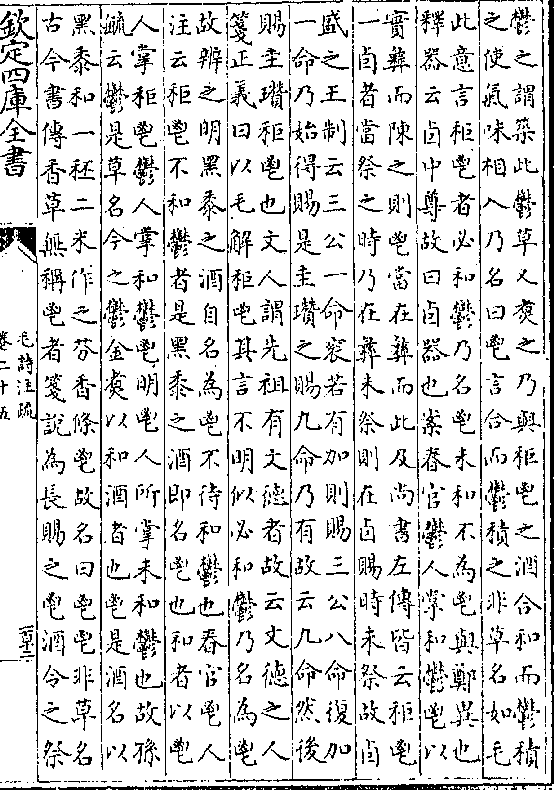 鬱之謂築此鬱草又煑之乃與秬鬯之酒合和而鬱積
之使氣味相入乃名曰鬯言合而鬱積之非草名如毛
此意言秬鬯者必和鬱乃名鬯未和不為鬯與鄭異也
釋器云卣中尊故曰卣器也案春官鬱人掌和鬱鬯以
實彝而陳之則鬯當在彝而此及尚書左傳皆云秬鬯
一卣者當祭之時乃在彝未祭則在卣賜時未祭故卣
盛之王制云三公一命衮若有加則賜三公八命復加
一命乃始得賜是圭瓚之賜九命乃有故云九命然後
賜圭瓚秬鬯也文人謂先祖有文德者故云文德之人
箋正義曰以毛解秬鬯其言不明似必和鬱乃名為鬯
故辨之明黑黍之酒自名為鬯不待和鬱也春官鬯人
注云秬鬯不和鬱者是黑黍之酒即名鬯也和者以鬯
人掌秬鬯鬱人掌和鬱鬯明鬯人所掌未和鬱也故孫
毓云鬱是草名今之鬱金煑以和酒者也鬯是酒名以
黑黍和一秠二米作之芬香條鬯故名曰鬯鬯非草名
古今書傳香草無稱鬯者箋說為長賜之鬯酒令之祭
欽定四庫全書
毛詩注疏
卷二十五